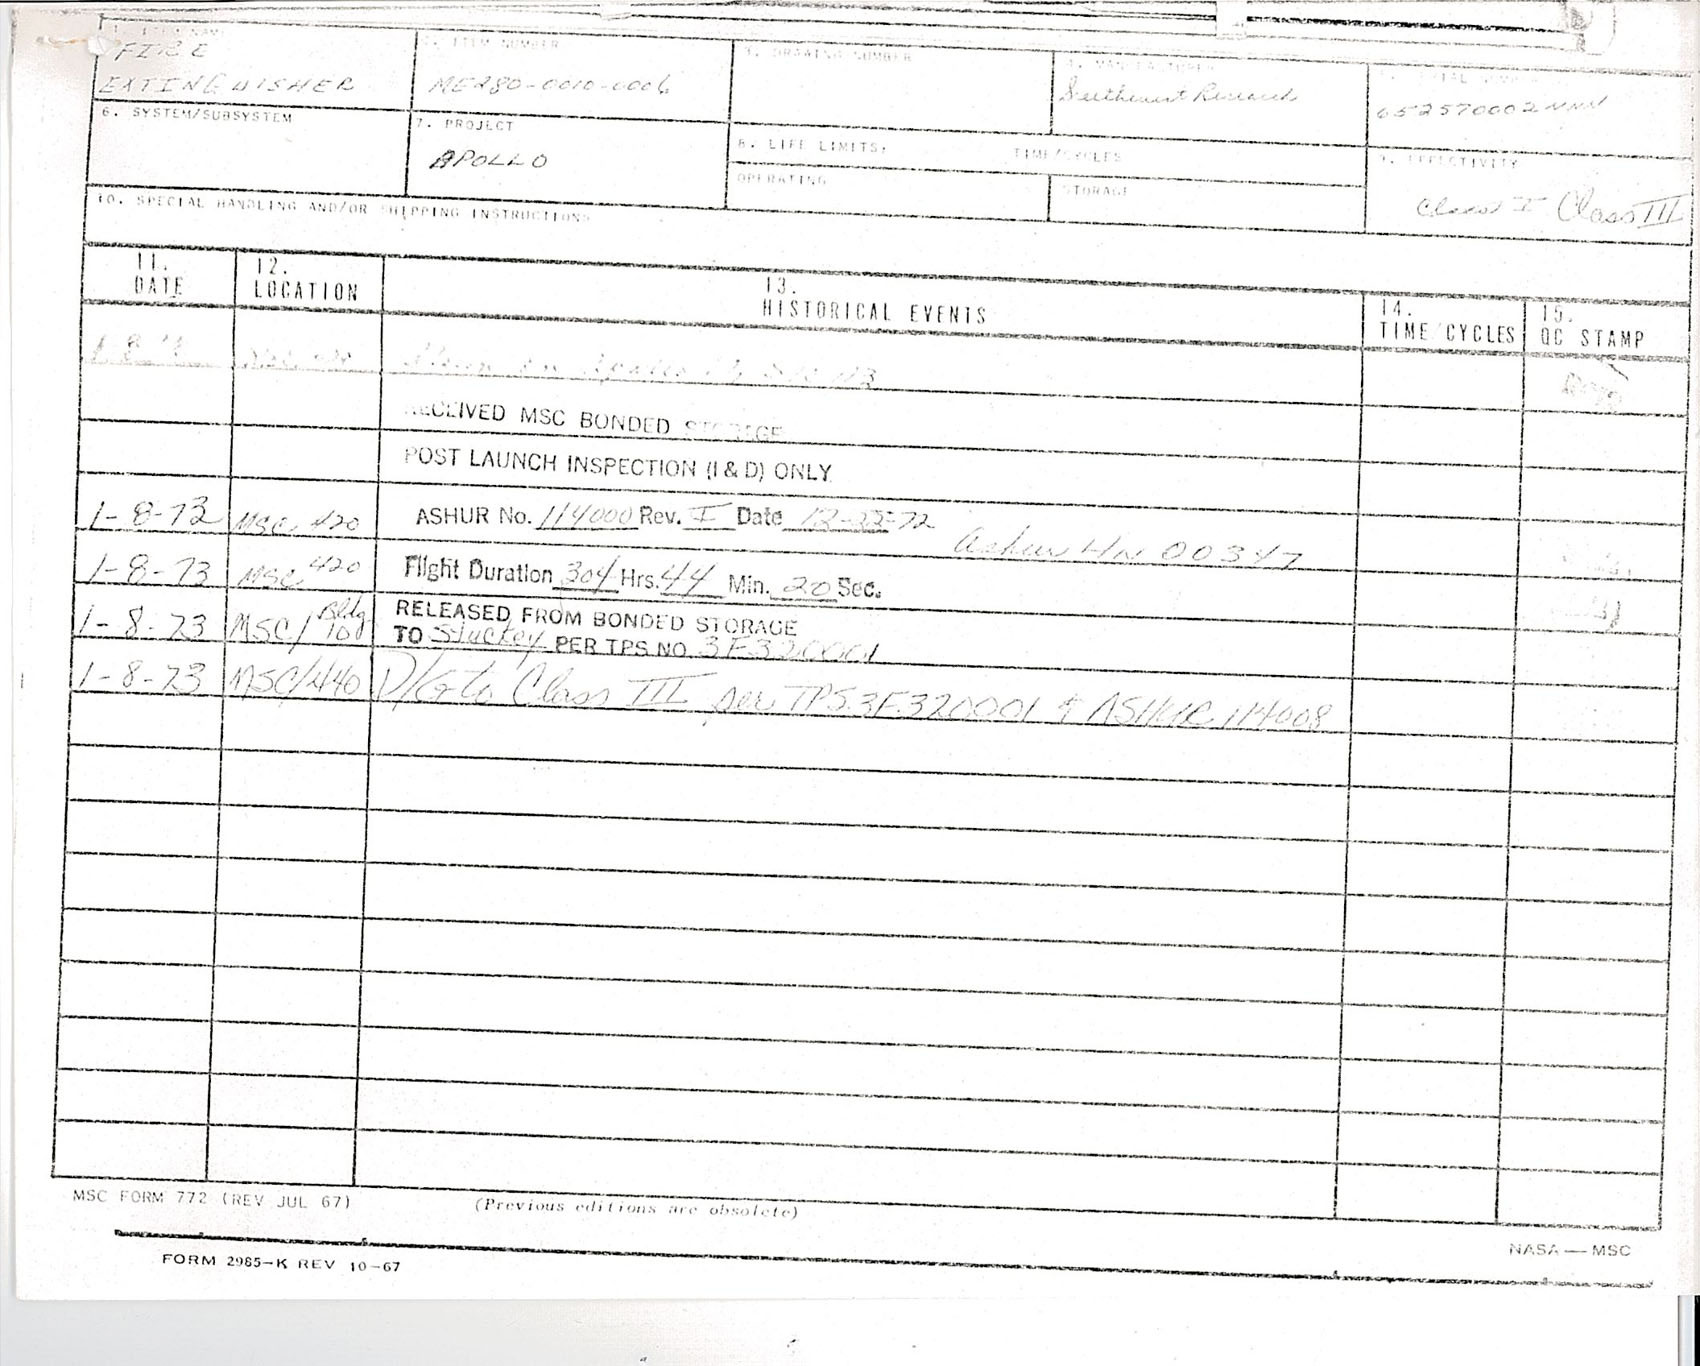 1. ITEM NAME
FIRE
EXTINGUISHER
2. ITEM NUMBER
ME280-0010-0006
3. DRAWING NUMBER
4. MANUFACTURER
Southwest Research
5. SERIAL NUMBER
6. SYSTEM/SUBSYSTEM
7. PROJECT
APOLLO
8. LIFE LIMITS: TIME/CYCLES
OPERATING
STORAGE
9. EFFECTIVITY
Class I Class III
10. SPECIAL HANDLING AND/OR SHIPPING INSTRUCTIONS
11. DATE
12. LOCATION
13. HISTORICAL EVENTS
14. TIME/CYCLES
15. QC STAMP
RECEIVED MSC BONDED STORAGE
POST LAUNCH INSPECTION (I & D) ONLY
1-8-73 MSC 420 ASHUR No. 114000 Rev. I Date 12-23-72 Ashur HN 00347
1-8-73 MSC 420 Flight Duration 304 Hrs. 44 Min. 20 Sec.
1-8-73 MSC/ Bldg 10 RELEASED FROM BONDED STORAGE
TO Stuckey PER TPS NO. 3F320001
1-8-73 MSC/440 D/G to Class III per TPS 3F320001 & ASHUR 114008
MSC FORM 772 (REV JUL 67) (Previous editions are obsolete)
NASA — MSC
FORM 2985-K REV 10-67